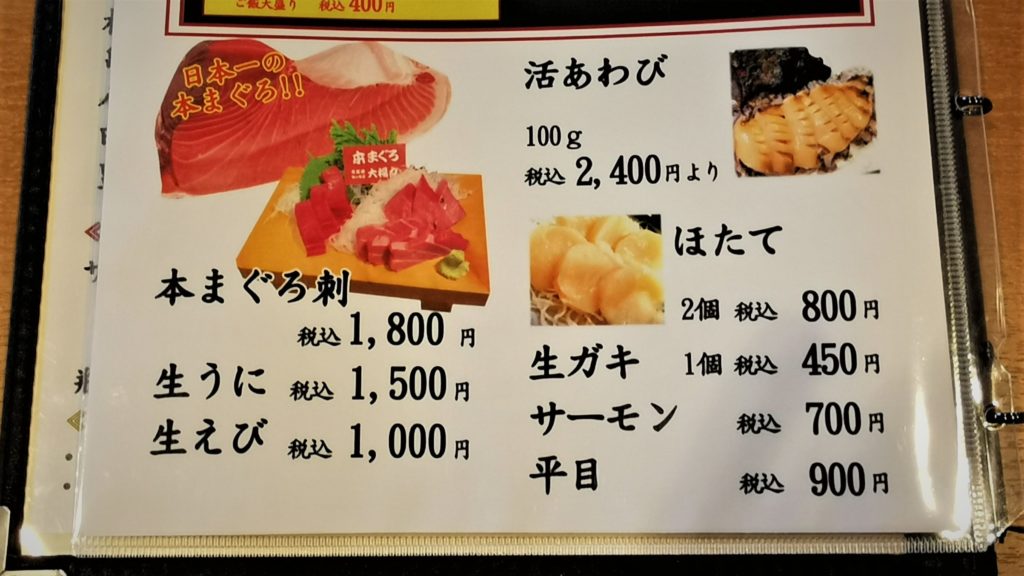 ご飯大盛り 税込400円
日本一の
本まぐろ!!
本まぐろ
本まぐろ刺
税込 1,800 円
生うに 税込 1,500 円
生えび 税込 1,000 円
活あわび
100g
税込 2,400円より
ほたて
2個 税込 800円
生ガキ 1個 税込 450円
サーモン 税込 700円
平目 税込 900円